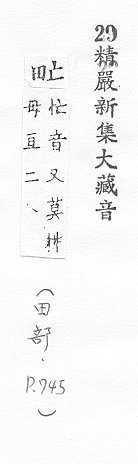 29精嚴新集大藏音
甿
忙音又莫耕
毋亘二丶
（田部．P.745）